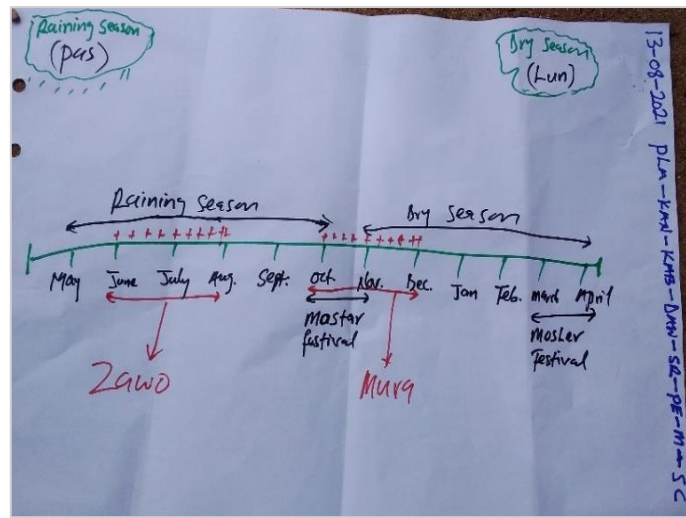 Raining Season
(pas)
Dry Season
(Lun)
13-08-2021 PLM-KAN-KMB-DMN-SR-PE-M-SC
Raining Season
Dry Season
May June July Aug. Sept. Oct. Nov. Dec. Jan Feb. March April
Mastar
festival
Mosler
Festival
Zawo
Mura